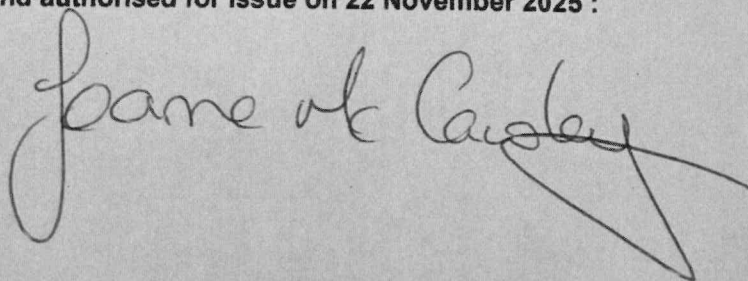 nd authorised for issue on 22 November 2025 :
Joanne Mc